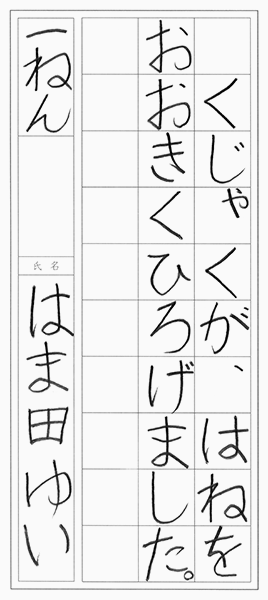 くじゃくが、はねを
おおきくひろげました。
一ねん
氏名
はま田ゆい